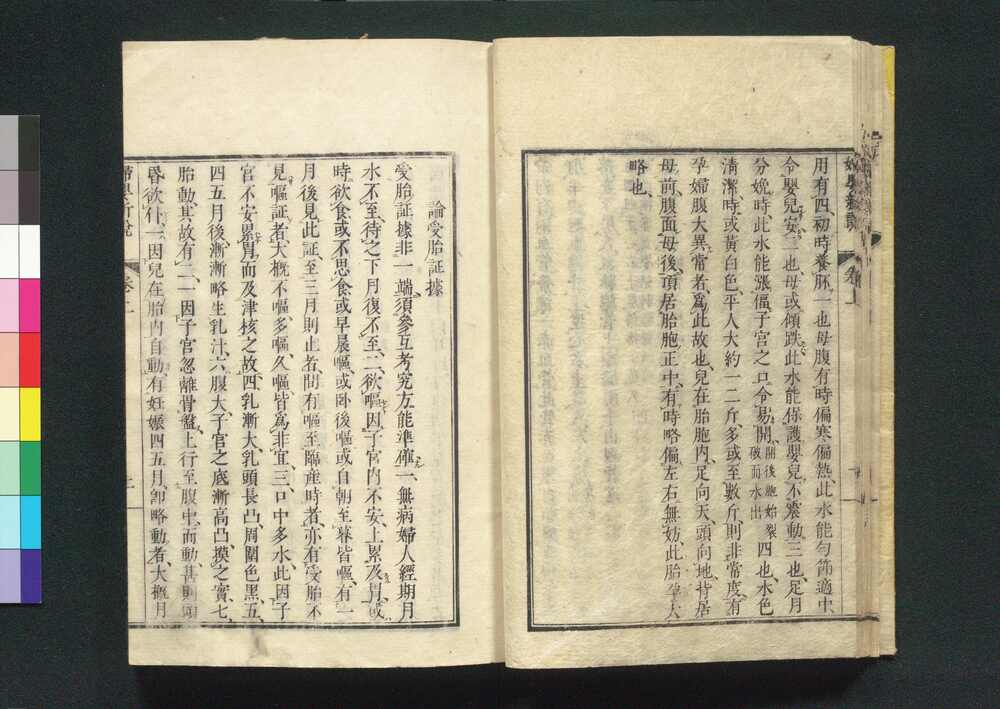 用有四初時養胚一也母腹有時偏寒偏熱此水能勻節適中
令嬰兒安二也母或傾跌此水能保護嬰兒不震動三也足月
分娩時此水能漲偪子宮之口令易開開後胞始裂破而水出四也水色
清潔時或黃白色平人大約一二斤多或至數斤則非常度有
孕婦腹大異常者爲此故也兒在胎胞內足向天頭向地背居
母前腹面母後頂居胎胞正中有時略偏左右無妨此胎孕大
略也
論受胎証據
受胎証據非一端須參互考究方能準確一無病婦人經期月
水不至待之下月復不至二欲嘔因子宮內不安上累及胃或
時欲食或不思食或早晨嘔或臥後嘔或自朝至暮皆嘔有一
月後見此証至三月則止者間有嘔至臨産時者亦有受胎不
見嘔証者大概不嘔多嘔久嘔皆爲非宜三口中多水此因子
宮不安累胃而及津核之故四乳漸大乳頭長凸周圍色黑五
四五月後漸漸略生乳汁六腹大子宮之底漸高凸摸之實七
胎動其故有二一因子宮忽離骨盤上行至腹中而動甚則頭
昏欲仆一因兒在胎內自動有妊孀四五月卽略動者大概月
婦嬰新說
卷上